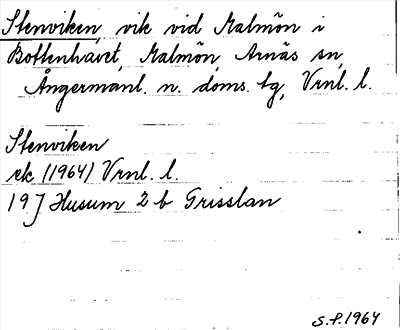 Stenviken, vik vid Malmön i
Bottenhavet, Malmön, Arnäs sn,
Ångermanl. n. doms. tg, Vrnl. l.
Stenviken
ek (1964) Vrnl. l.
19J Husum 2 b Grisslan
S.F. 1964